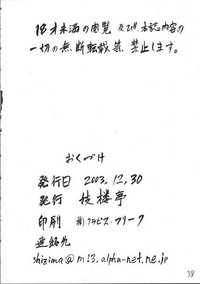 18才未満の閲覧 及び 本誌内容の
一切の無断転載等、禁止します。
おくづけ
発行日 2003.12.30
発行 技楼亭
印刷 ㈱グラビス・フリーク
連絡先
shizima@m13.alpha-net.ne.jp
38